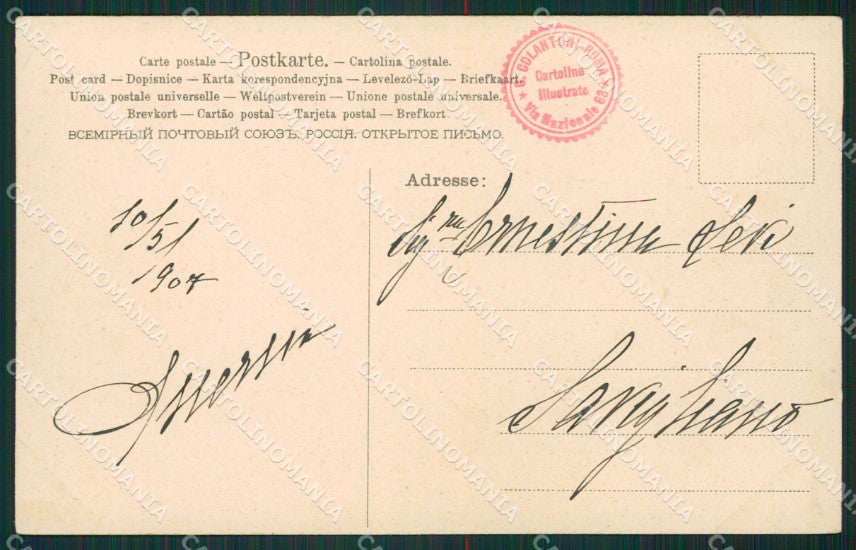 Carte postale — Postkarte. — Cartolina postale.
Post card — Dopisnice — Karta korespondencyjna — Levelező-Lap — Briefkaart.
Union postale universelle — Weltpostverein — Unione postale universale.
Brevkort — Cartão postal — Tarjeta postal — Brefkort
ВСЕМІРНЫЙ ПОЧТОВЫЙ СОЮЗЪ. РОССІЯ. ОТКРЫТОЕ ПИСЬМО.
G. COLANTONI-ROMA
Cartoline
Illustrate
Via Nazionale 63
Adresse:
10/5/
1904
Sig.ra Ernestina Levi
Savigliano
CARTOLINOMANIA